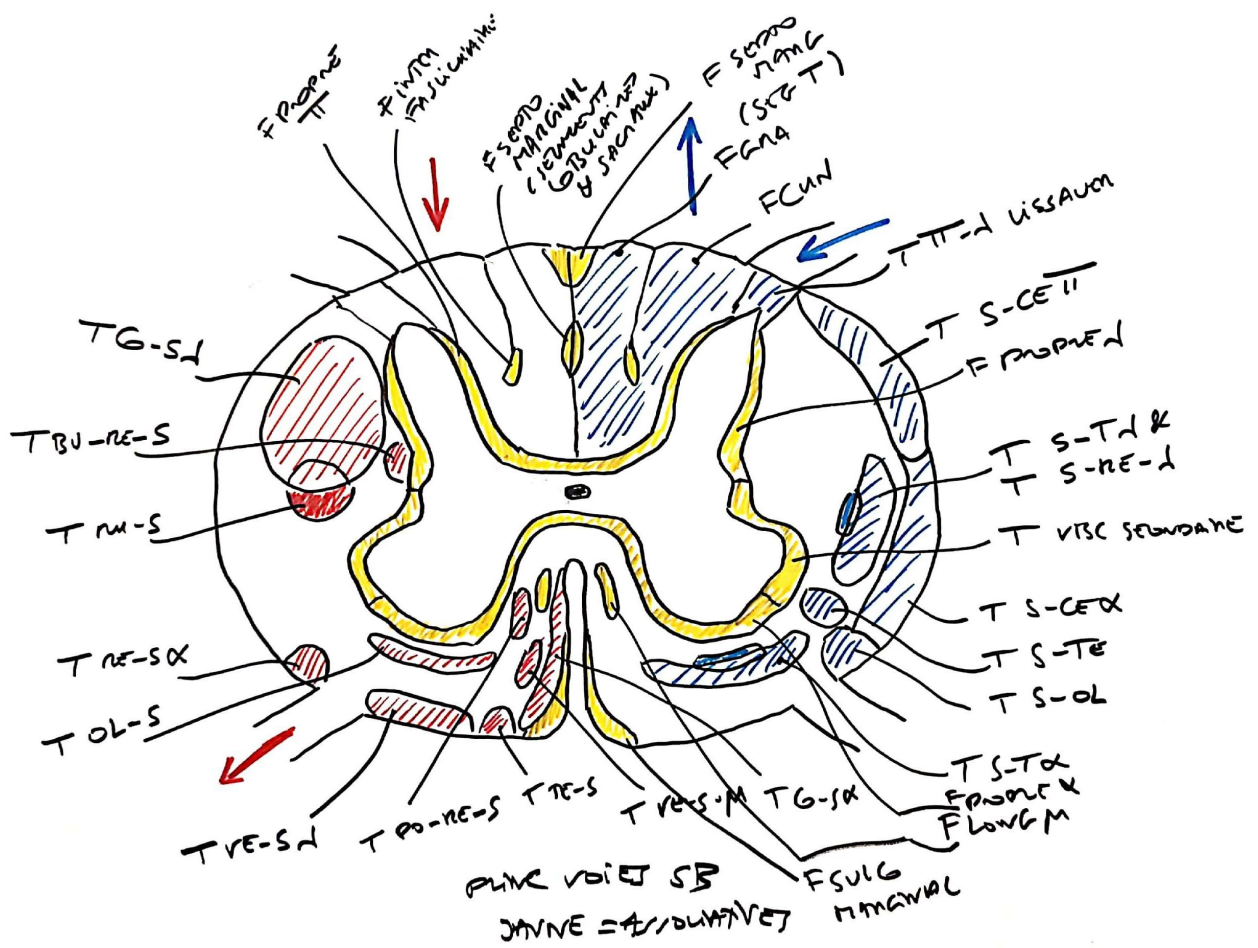 F PROPRE
π
F INTER
FASCICULAIRE
F SEPTO
MARGINAL
(SEGMENTS
GBULAIRES
& SACRAUX)
F SEPTO
MARG
(SEG T)
F GRA
F CUN
T π-λ LISSAUER
T S-CE π
F PROPRE λ
T S-T λ &
T S-RE-λ
T VISC SECONDAIRE
T S-CE α
T S-TE
T S-OL
T S-T α
F PROPRE α
F LONG M
F SULC
MARGINAL
T G-S λ
T BU-RE-S
T RU-S
T RE-S α
T OL-S
T VE-S λ
T PO-RE-S
T TE-S
T VE-S-M
T G-S α
VOIES SB
JAUNE = ASSOCIATIVES